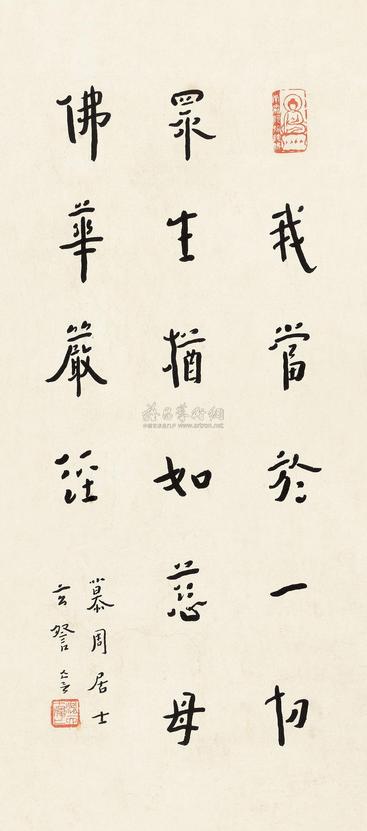 我當於一切
眾生猶如慈母
佛華嚴經
慕周居士
玄嚳書
雅昌藝術網
www.artron.net